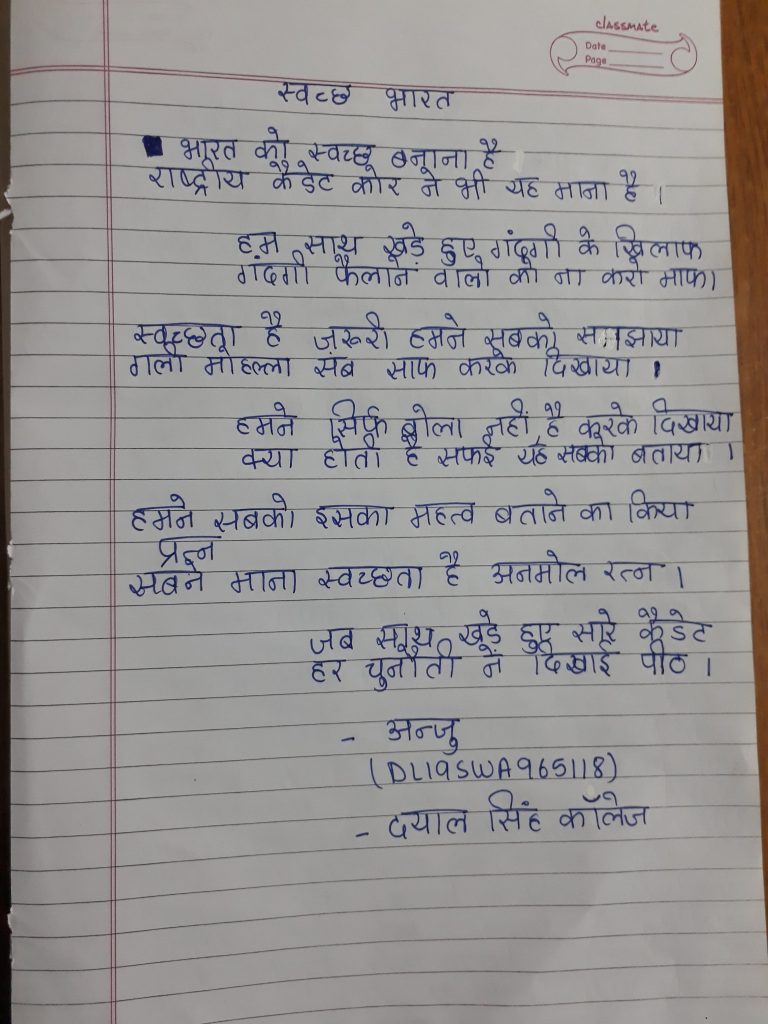 classmate
Date
Page
स्वच्छ भारत
भारत को स्वच्छ बनाना है
राष्ट्रीय कैडेट कोर ने भी यह माना है ।
हम साथ खड़े हुए गंदगी के खिलाफ
गंदगी फैलाने वालो को ना करो माफ।
स्वच्छता है जरूरी हमने सबको समझाया
गली मोहल्ला सब साफ करके दिखाया ।
हमने सिर्फ बोला नहीं है करके दिखाया
क्या होती है सफाई यह सबको बताया ।
हमने सबको इसका महत्व बताने का किया
सबने माना स्वच्छता है अनमोल रत्न ।
जब साथ खड़े हुए सारे कैडेट
हर चुनौती ने दिखाई पीठ ।
- अन्जु
(DL19SWA965118)
- दयाल सिंह कॉलेज